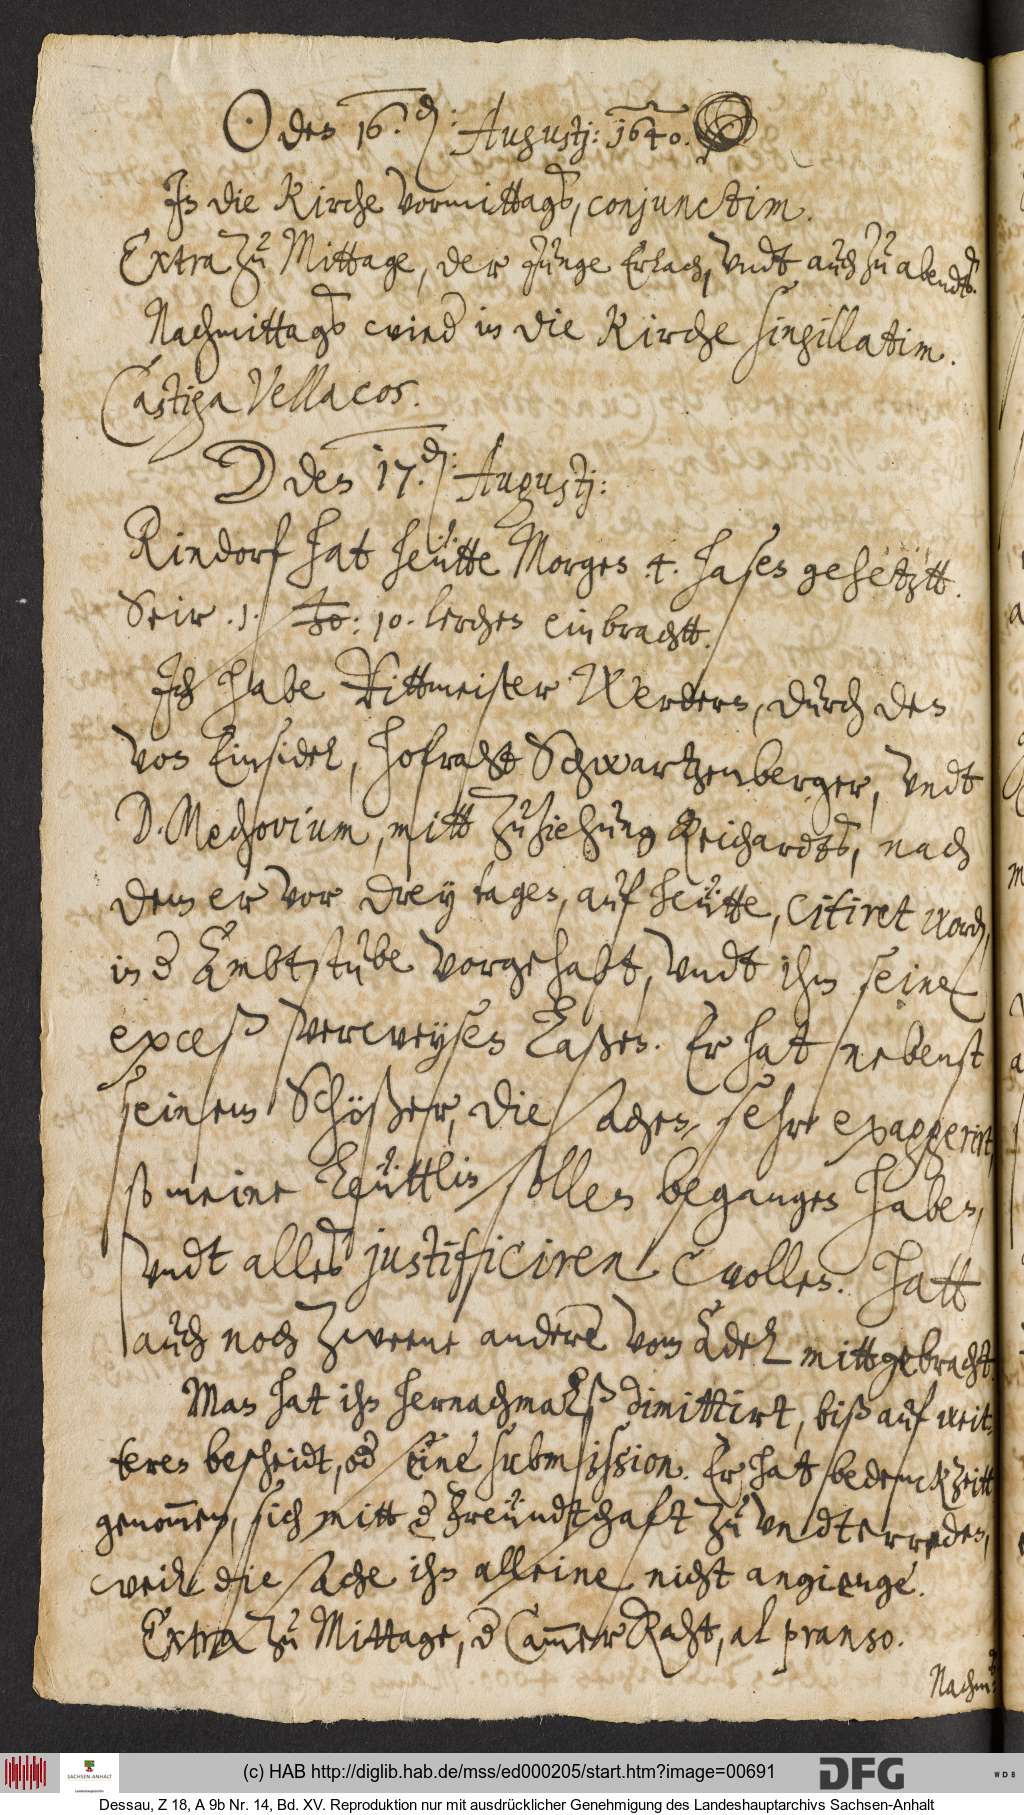 ☉ den 16. d: Augustj: 1640.
In die Kirche vormittags, conjunctim.
Extra zu Mittage, der iunge Erlach, vndt auch zu abendts.
Nachmittags wied in die Kirche singillatim.
Castiga Vellacos.
☽ den 17. d: Augustj:
Rindorf hat heütte Morgen .4. hasen gehetztt.
Seir .1. 10. lerchen einbrachtt.
Ich habe Rittmeister Werdern, durch den
von Einsidel, hofraht Schwartzenberger, vndt
D. Mechovium, mitt zuziehung Reichardts, nach
dem er vor drey tagen, auf heütte, citiret word,
in d Ambtstube vorgehabt, vndt ihm seine
exceß verweysen laßen. Er hat nebenst
seinem Schößer, die sachen, sehr exaggerirt,
so meine Leüttlin sollen begangen haben,
vndt alles justificiren wollen. Hatt
auch noch zweene andere vom Adel mittgebracht.
Man hat ihn hernachmalß dimittirt, biß auf weit
teren bescheidt, od eine submission. Er hat bedenckzeitt
genommen, sich mitt d freündtschaft zu vndterreden,
weil die sache ihn alleine nicht angienge.
Extra zu Mittage, d CammerRaht, al pranso.
Nachm
(c) HAB http://diglib.hab.de/mss/ed000205/start.htm?image=00691
SACHSEN-ANHALT
DFG
WDB
Dessau, Z 18, A 9b Nr. 14, Bd. XV. Reproduktion nur mit ausdrücklicher Genehmigung des Landeshauptarchivs Sachsen-Anhalt